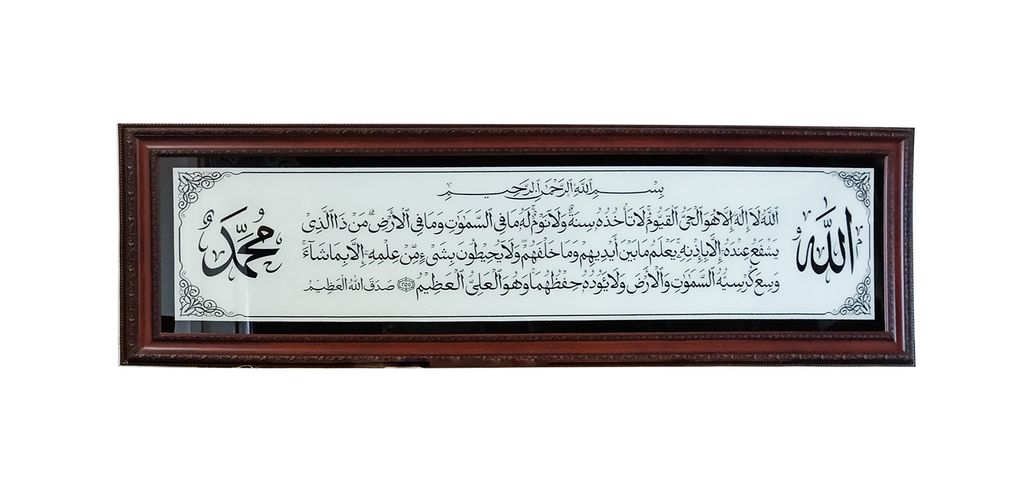 بِسْمِ اللَّهِ الرَّحْمَٰنِ الرَّحِيمِ
اللَّهُ
اللَّهُ لَا إِلَٰهَ إِلَّا هُوَ الْحَيُّ الْقَيُّومُ لَا تَأْخُذُهُ سِنَةٌ وَلَا نَوْمٌ لَهُ مَا فِي السَّمَٰوَٰتِ وَمَا فِي الْأَرْضِ مَنْ ذَا الَّذِي
يَشْفَعُ عِنْدَهُ إِلَّا بِإِذْنِهِ يَعْلَمُ مَا بَيْنَ أَيْدِيهِمْ وَمَا خَلْفَهُمْ وَلَا يُحِيطُونَ بِشَيْءٍ مِنْ عِلْمِهِ إِلَّا بِمَا شَاءَ
وَسِعَ كُرْسِيُّهُ السَّمَٰوَٰتِ وَالْأَرْضَ وَلَا يَئُودُهُ حِفْظُهُمَا وَهُوَ الْعَلِيُّ الْعَظِيمُ ﴿٢٥٥﴾ صَدَقَ اللَّهُ الْعَظِيمُ
مُحَمَّدٌ